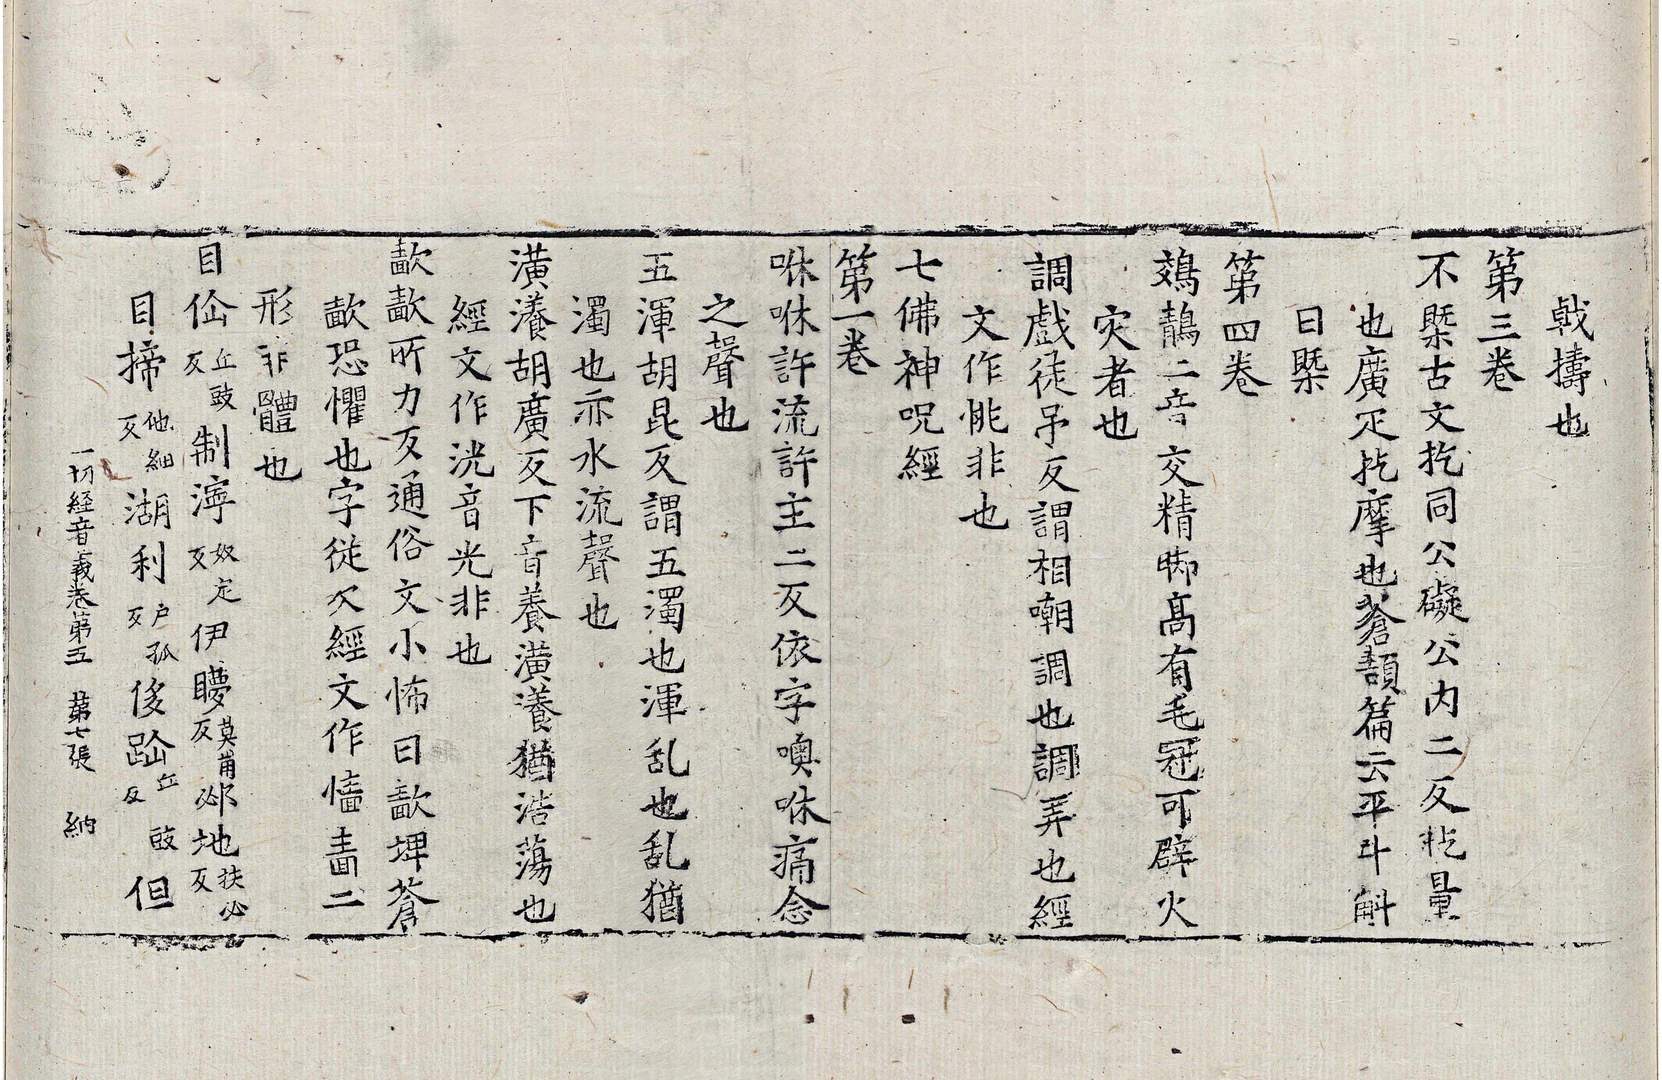 戟擣也
第三卷
不槩古文扢同公礙公内二反扢量
也廣疋扢摩也蒼頡篇云平斗斛
曰槩
第四卷
鵁鶄二音交精脚高有毛冠可辟火
灾者也
調戲徒吊反謂相嘲調也調弄也經
文作恌非也
七佛神呪經
第一卷
咻咻許流許主二反依字噢咻痛念
之聲也
五渾胡昆反謂五濁也渾乱也乱猶
濁也亦水流聲也
潢瀁胡廣反下音養潢瀁猶浩蕩也
經文作洸音光非也
歗歗所力反通俗文小怖曰歗埤蒼
歗恐懼也字從欠經文作懎嗇二
形非體也
目佡丘豉反制濘奴定反伊矇莫莆反邲地扶必反
目揥他細反湖利户孤反侈跕丘豉反但
一切経音義卷第五 第七張 納